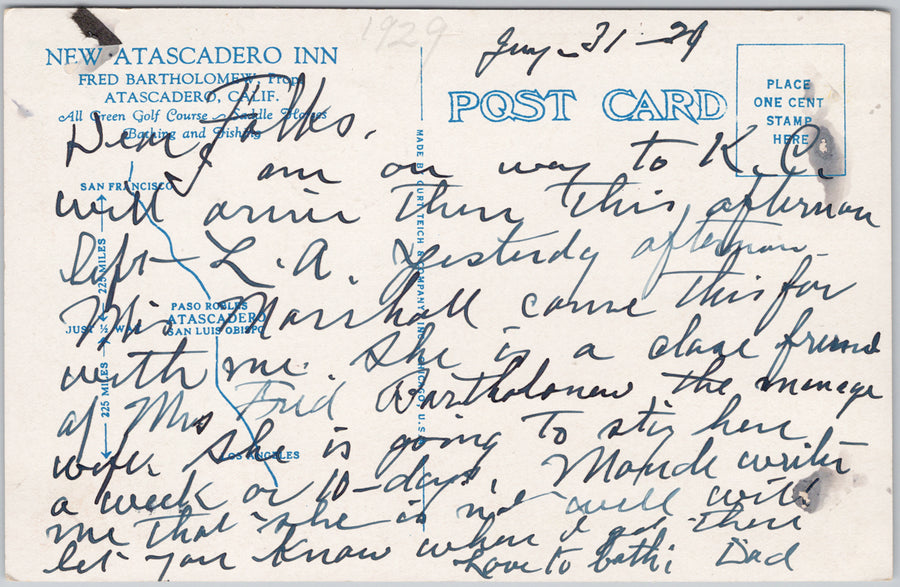 1929
NEW ATASCADERO INN
FRED BARTHOLOMEW, Prop.
ATASCADERO, CALIF.
All Green Golf Course - Saddle Horses
Bathing and Fishing
SAN FRANCISCO
225 MILES
PASO ROBLES
ATASCADERO
SAN LUIS OBISPO
JUST ½ WAY
225 MILES
LOS ANGELES
MADE BY CURT TEICH & COMPANY, INC., CHICAGO, U.S.A.
POST CARD
PLACE
ONE CENT
STAMP
HERE
31 - 29
Dear Folks.
I am on way to K.C.
will arive then this afternoon
left L.A. yesterdy afternoon
Marshall came this far
with me. She is a close friend
of Mrs Fred Bartholomew the manage
wife she is going to stay here
a week or 10-days, Maude writes
me that she is not well will
let you know when I get there
Love to bothe Dad